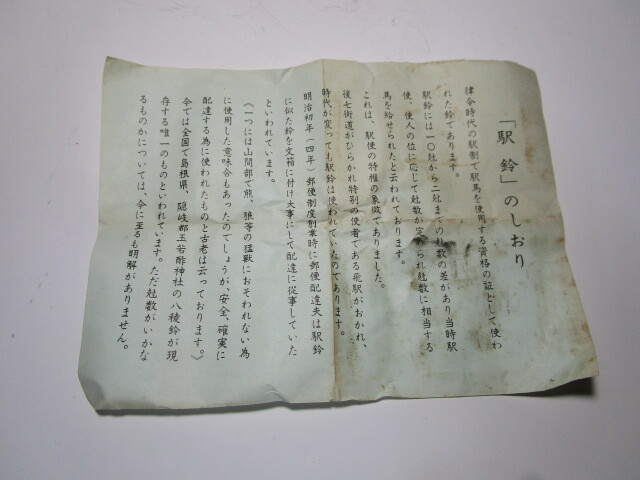 「駅鈴」のしおり
律令時代の駅制で駅馬を使用する資格の証として使わ
れた鈴であります。
駅鈴には一〇尅から二尅までの尅数の差があり当時駅
使、使人の位に応じて尅数が定められ尅数に相当する
馬を給せられたと云われております。
これは、駅使の特権の象徴でありました。
後七街道がひらかれ特別の使者である飛駅がおかれ、
時代が変っても駅鈴は使われていたのであります。
明治初年(四年)郵便制度創業時に郵便配達夫は駅鈴
に似た鈴を文箱に付け大事にして配達に従事していた
といわれています。
《一つには山間部で熊、狼等の猛獣におそわれない為
に使用した意味合もあったのでしょうが、安全、確実に
配達する為に使われたものと古老は云っております。》
今では全国で島根県、隠岐郡玉若酢神社の八稜鈴が現
存する唯一のものといわれています。ただ尅数がいかな
るものかについては、今に至るも明解がありません。